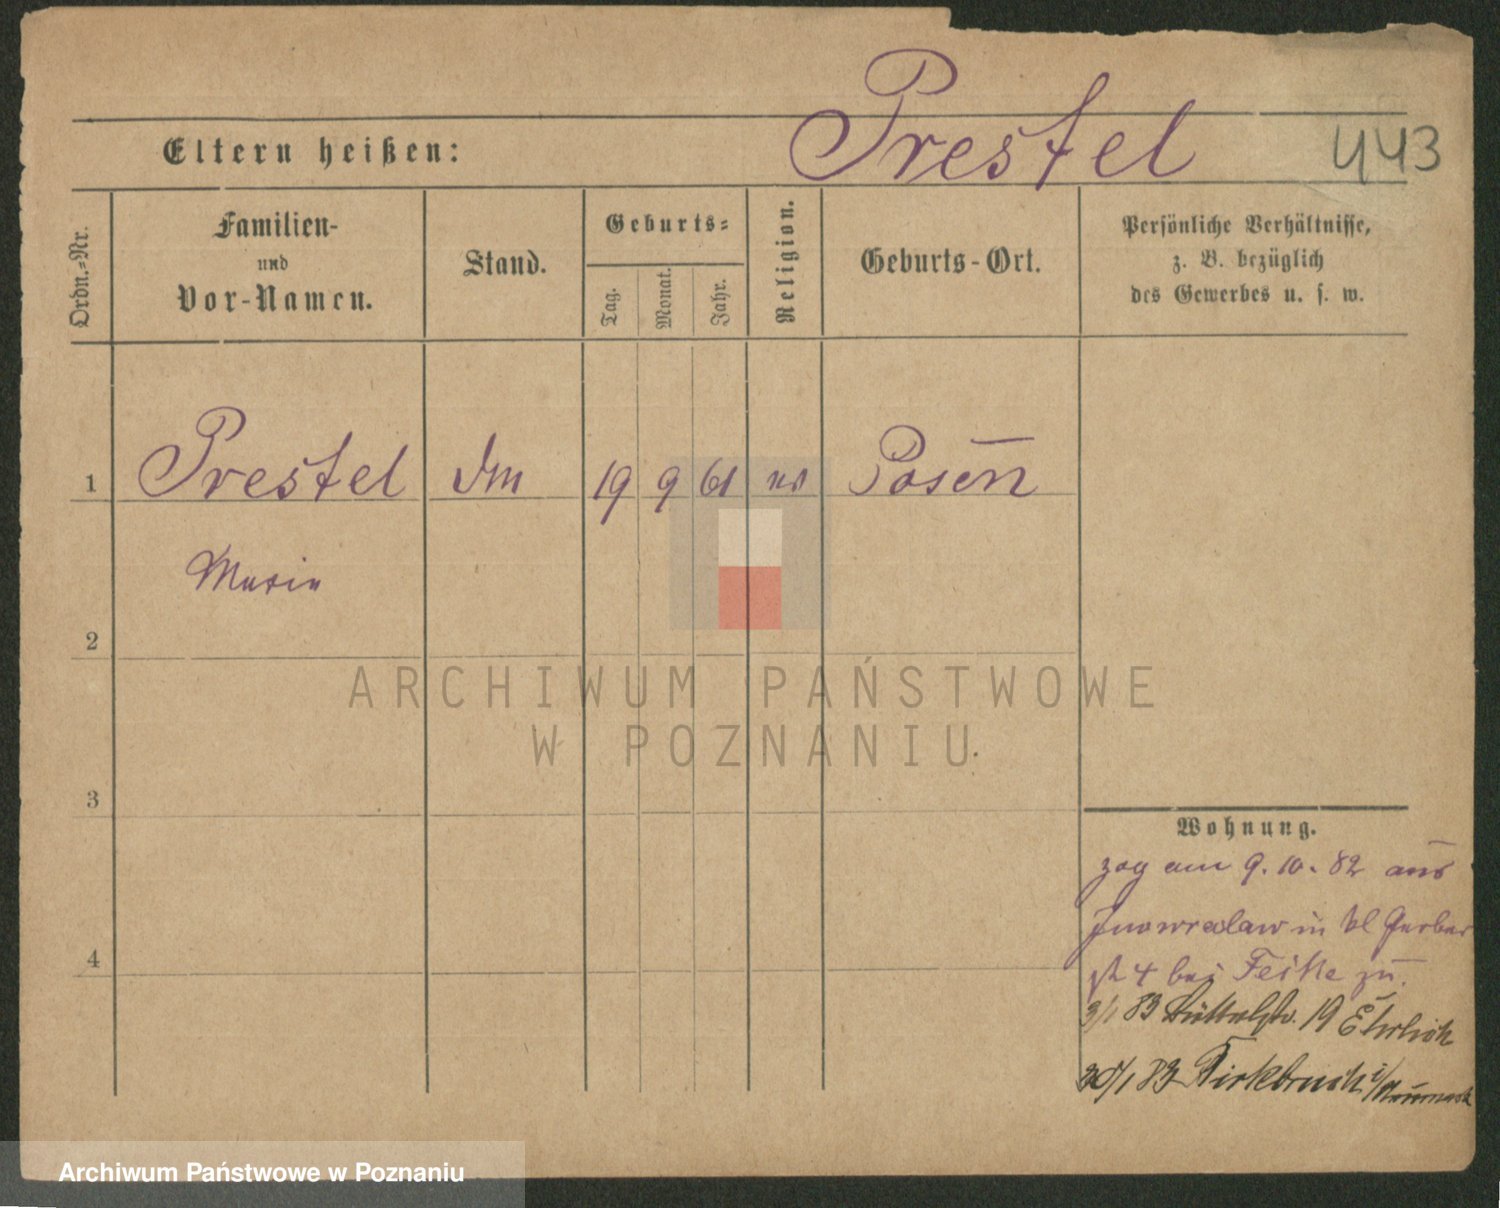 Prestel
443
Eltern heißen:
Ordn.-Nr.
Familien-
und
Vor-Namen.
Stand.
Geburts-
Tag.
Monat.
Jahr.
Religion.
Geburts-Ort.
Persönliche Verhältnisse,
z. B. bezüglich
des Gewerbes u. s. w.
1
Prestel
19
9
61
Posen
Marie
2
ARCHIWUM PAŃSTWOWE
W POZNANIU
3
Wohnung.
zog am 9. 10. 82 aus
Inowraclaw in kl Gerber
4
str 4 bei Feske zu.
3/1 83 Büttelstr. 19 Ehrlich
30/1 83
Archiwum Państwowe w Poznaniu